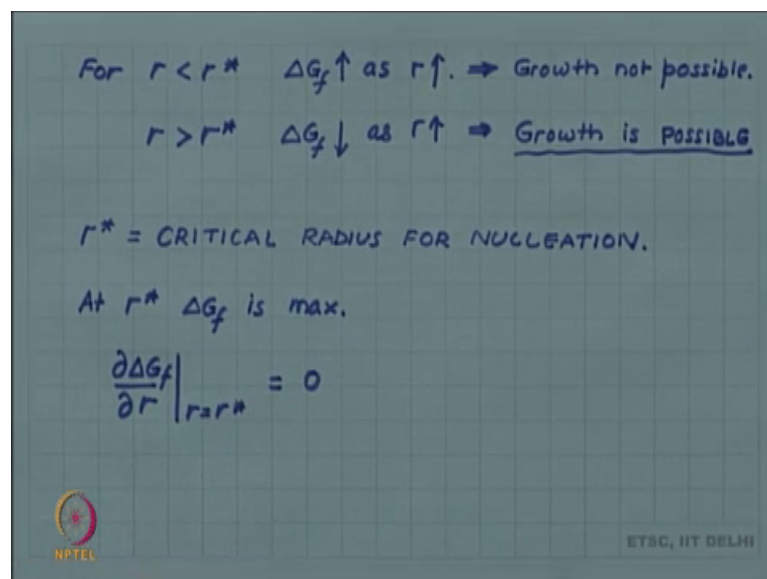 For r < r* ΔG_f ↑ as r↑. ⇒ Growth not possible.
r > r* ΔG_f ↓ as r↑ ⇒ Growth is POSSIBLE
r* = CRITICAL RADIUS FOR NUCLEATION.
At r* ΔG_f is max.
∂ΔG_f/∂r |r=r* = 0
NPTEL
ETSC, IIT DELHI